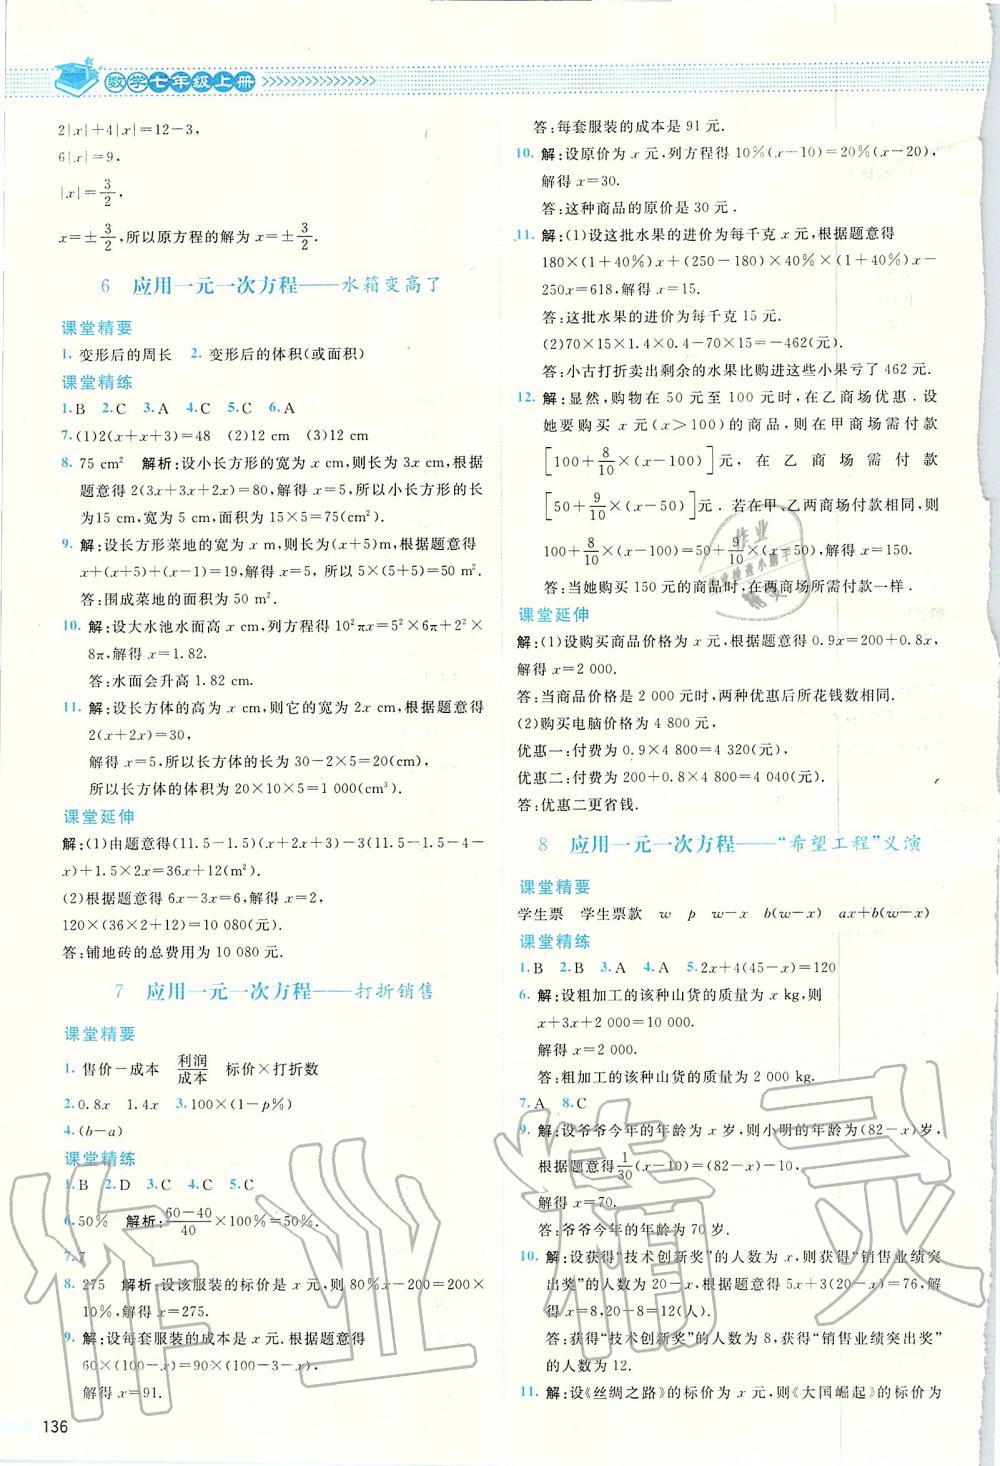 数学七年级上册
2|x|+4|x|=12-3,
6|x|=9,
|x|=3/2,
x=±3/2,所以原方程的解为x=±3/2.
6 应用一元一次方程——水箱变高了
课堂精要
1. 变形后的周长 2. 变形后的体积(或面积)
课堂精练
1.B 2.C 3.A 4.C 5.C 6.A
7.(1)2(x+x+3)=48 (2)12 cm (3)12 cm
8. 75 cm² 解析:设小长方形的宽为x cm,则长为3x cm,根据
题意得2(3x+3x+2x)=80,解得x=5,所以小长方形的长
为15 cm,宽为5 cm,面积为15×5=75(cm²).
9. 解:设长方形菜地的宽为x m,则长为(x+5)m,根据题意得
x+(x+5)+(x-1)=19,解得x=5,所以x(x+5)=50.
答:围成菜地的面积为50 m².
10. 解:设大水池水面高x cm,列方程得10²πx=5²×6π+2²×
8π,解得x=1.82.
答:水面会升高1.82 cm.
11. 解:设长方体的高为x cm,则它的宽为2x cm,根据题意得
2(x+2x)=30,
解得x=5,所以长方体的长为30-2×5=20(cm),
所以长方体的体积为20×10×5=1 000(cm³).
课堂延伸
解:(1)由题意得(11.5-1.5)(x+2x+3)-3(11.5-1.5-
x)+1.5×2x=36x+12(m²).
(2)根据题意得6x-3x=6,解得x=2,
120×(36×2+12)=10 080(元).
答:铺地砖的总费用为10 080元.
7 应用一元一次方程——打折销售
课堂精要
1. 售价-成本 利润/成本 标价×打折数
2.0.8x 1.4x 3.100×(1-p%)
4.(b-a)
课堂精练
1.B 2.D 3.C 4.C 5.C
6.50% 解析:(60-40)/40×100%=50%.
7.7
8. 275 解析:设该服装的标价是x元,则80%x-200=200×
10%,解得x=275.
9. 解:设每套服装的成本是x元.根据题意得
60×(100-x)=90×(100-3-x),
解得x=91.
136
答:每套服装的成本是91元.
10. 解:设原价为x元,列方程得10%(x-10)=20%(x-20),
解得x=30.
答:这种商品的原价是30元.
11. 解:(1)设这批水果的进价为每千克x元,根据题意得
180×(1+40%)x+(250-180)×40%×(1+40%)x-
250x=618,解得x=15.
答:这批水果的进价为每千克15元.
(2)70×15×1.4×0.4-70×15=-462(元).
答:小古打折卖出剩余的水果比购进这些水果亏了462元.
12. 解:显然,购物在50元至100元时,在乙商场优惠.设
她要购买x元(x>100)的商品,则在甲商场需付款
[100+8/10×(x-100)]元,在乙商场需付款
[50+9/10×(x-50)]元.若在甲、乙两商场付款相同,则
100+8/10×(x-100)=50+9/10×(x-50),解得x=150.
答:当她购买150元的商品时,在两商场所需付款一样.
课堂延伸
解:(1)设购买商品价格为x元,根据题意得0.9x=200+0.8x,
解得x=2 000.
答:当商品价格是2 000元时,两种优惠后所花钱数相同.
(2)购买电脑价格为4 800元,
优惠一:付费为0.9×4 800=4 320(元),
优惠二:付费为200+0.8×4 800=4 040(元).
答:优惠二更省钱.
8 应用一元一次方程——“希望工程”义演
课堂精要
学生票 学生票款 w p w-x b(w-x) ax+b(w-x)
课堂精练
1.B 2.B 3.A 4.A 5.2x+4(45-x)=120
6. 解:设粗加工的该种山货的质量为x kg,则
x+3x+2 000=10 000.
解得x=2 000.
答:粗加工的该种山货的质量为2 000 kg.
7.A 8.C
9. 解:设爷爷今年的年龄为x岁,则小明的年龄为(82-x)岁,
根据题意得1/30(x-10)=(82-x)-10,
解得x=70.
答:爷爷今年的年龄为70岁.
10. 解:设获得“技术创新奖”的人数为x,则获得“销售业绩突
出奖”的人数为20-x,根据题意得5x+3(20-x)=76,解
得x=8,20-8=12(人).
答:获得“技术创新奖”的人数为8,获得“销售业绩突出奖”
的人数为12.
11. 解:设《丝绸之路》的标价为x元,则《大国崛起》的标价为
作业精灵